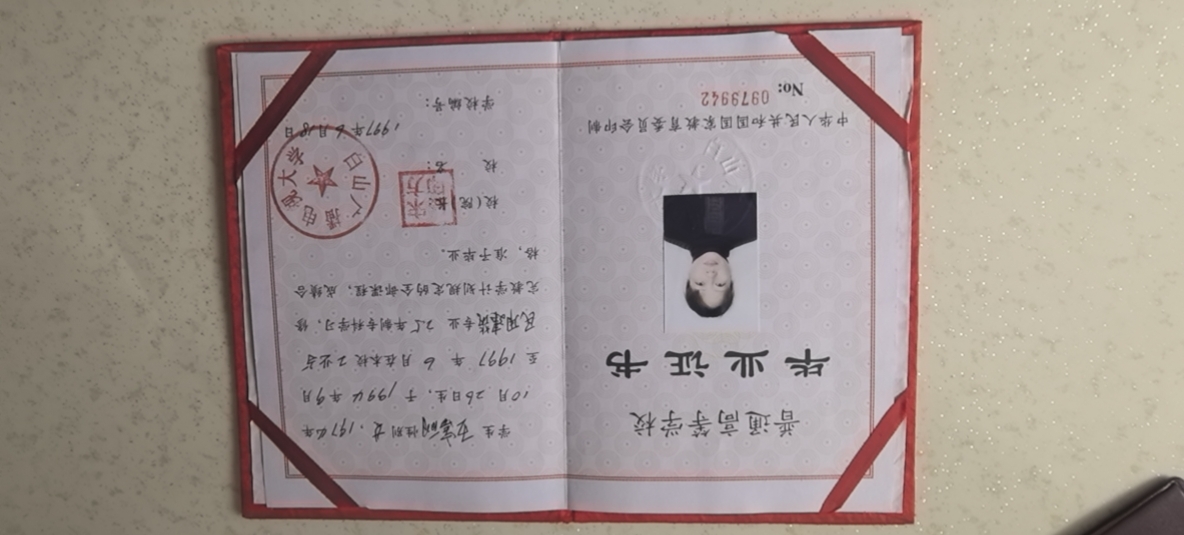 普通高等学校
毕业证书
中华人民共和国国家教育委员会印制
No: 0979942
学生 性别 女, 197 年
10月 26日生, 于 1994年9月
至 1997 年 6 月在本校工业与
民用建筑专业 2.5年制专科学习, 修
完教学计划规定的全部课程, 成绩合
格, 准予毕业。
校(院)长:
校 名:
广播电视大学
1997年6月18日
学校编号: